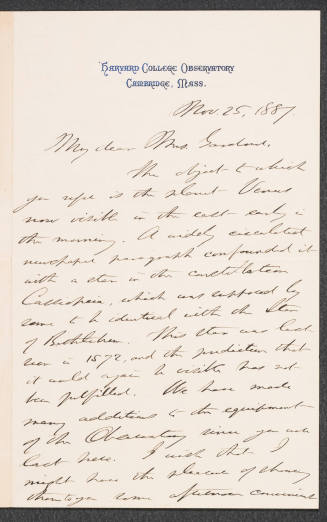 HARVARD COLLEGE OBSERVATORY
CAMBRIDGE, MASS.
Nov. 25, 1887.
My dear Mrs.
The object to which
you refer is the planet Venus
now visible in the east early in
the morning. A widely circulated
newspaper paragraph confounded it
with a star in the constellation
Cassiopeia, which was supposed by
some to be identical with the Star
of Bethlehem. This star was last
seen in 1572, and the prediction that
it would again be visible has not
been fulfilled. We have made
many additions to the equipment
of the Observatory since you were
last here. I wish that I
might have the pleasure of showing
them to you some afternoon convenient